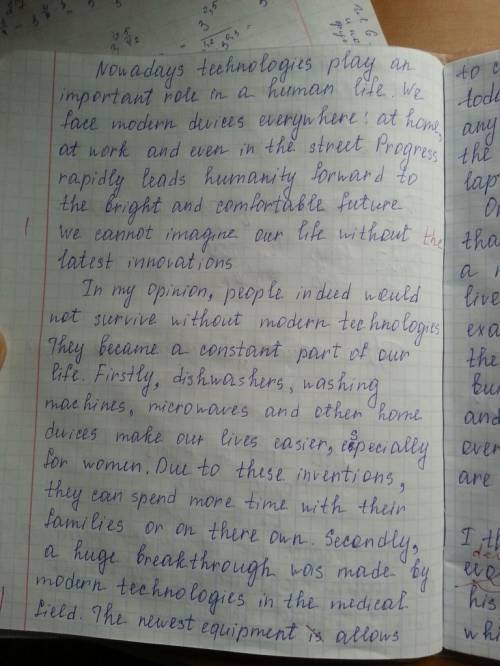 Nowadays technologies play an
important role in a human life. We
face modern devices everywhere: at home,
at work and even in the street Progress
rapidly leads humanity forward to
the bright and comfortable future
We cannot imagine our life without the
latest innovations
In my opinion, people indeed would
not survive without modern technologies
They became a constant part of our
life. Firstly, dishwashers, washing
machines, microwaves and other home
devices make our lives easier, especially
for women. Due to these inventions,
they can spend more time with their
families or on there own. Secondly,
a huge breakthrough was made by
modern technologies in the medical
field. The newest equipment is allows
to c
toda
any
the
lap
tha
a n
live
exa
the
bur
and
over
are
I th
evo
his
whi